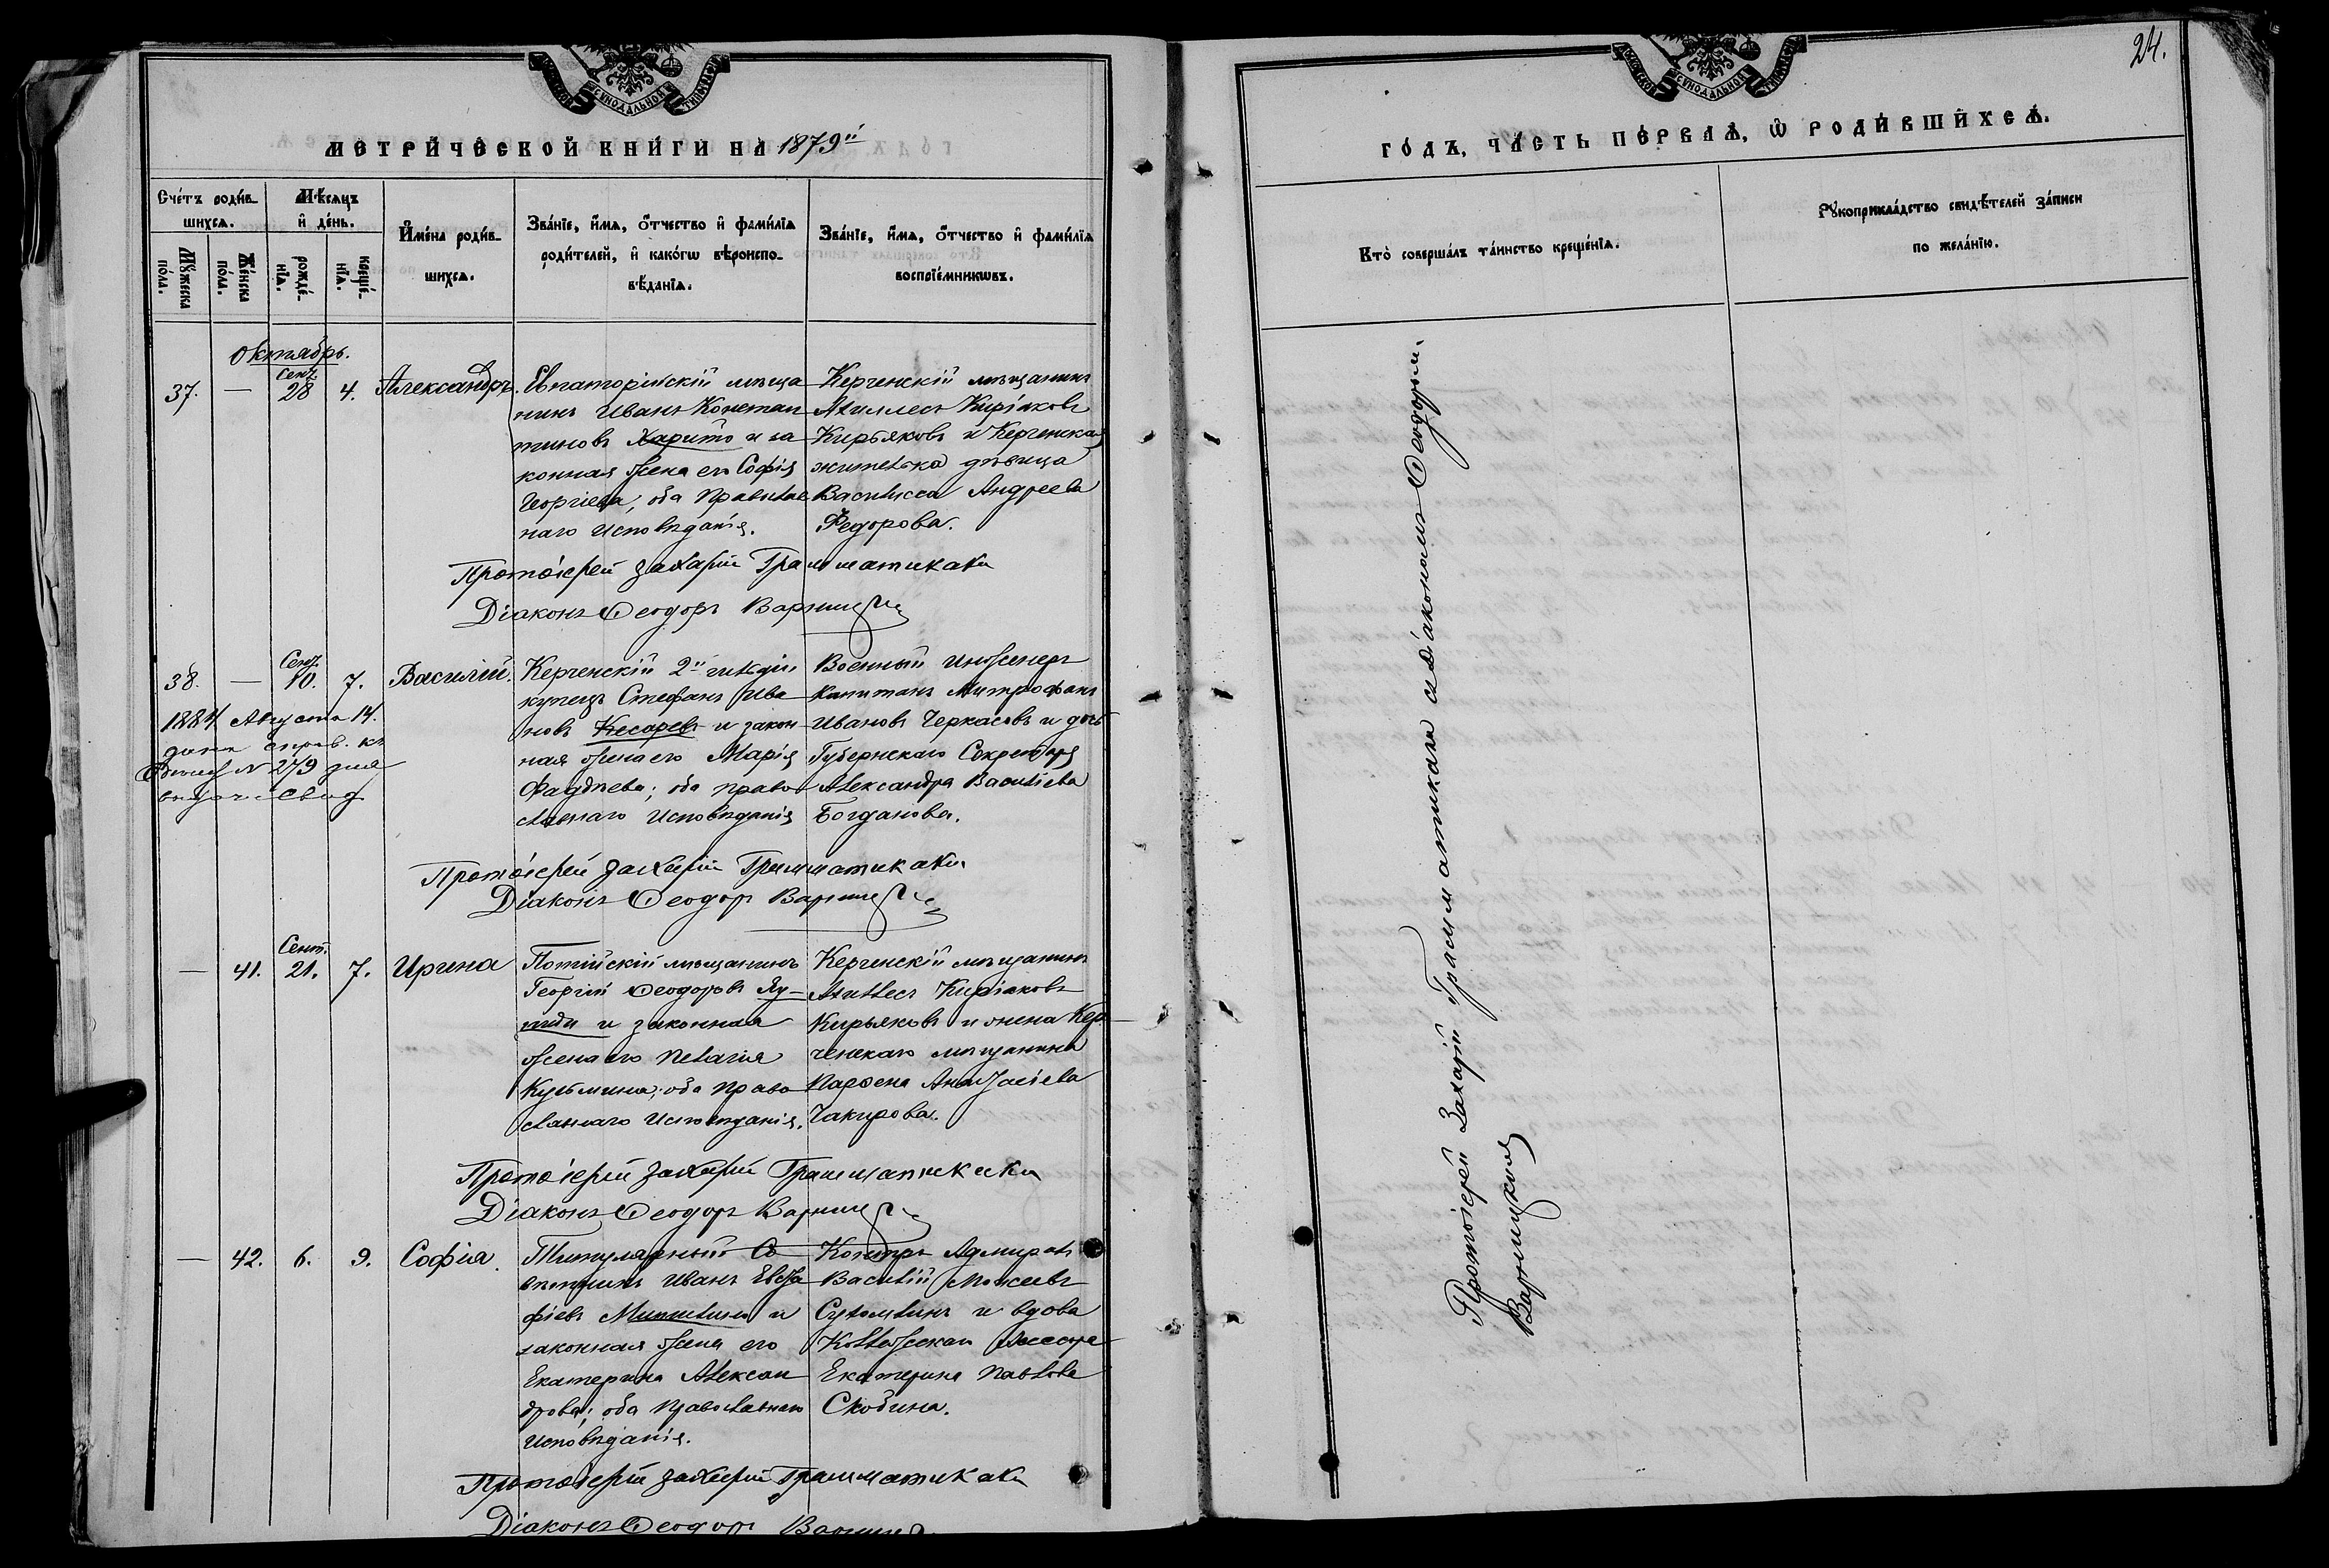 МЕТРИЧЕСКОЙ КНИГИ НА 1879й
Счетъ родив-
шихся.
Мѣсяцъ
и день.
Имена родив-
шихся.
Званіе, имя, отчество и фамилія
родителей, и какогѡ вѣроиспо-
вѣданія.
Званіе, имя, отчество и фамилія
воспріемникѡвъ.
Мужеска
пола.
Женска
пола.
рожде-
нія.
креще-
нія.
Октябрь.
37. — Сент. 28 4. Александръ.
Евпаторійскій мѣща
нинъ Иванъ Констан
тиновъ Харито и за
конная жена его Софія
Георгіева, оба Православ
наго Исповѣданія.
Керченскій мѣщанинъ
Ахиллесъ Киріаковъ
Кирьяковъ и Керченская
жителька дѣвица
Василисса Андреева
Федорова.
Протоіерей Захарій Грамматикаки
Діаконъ Ѳеодоръ
38. — Сент. 10. 7. Василій.
1884 Августа 14.
дана справ. къ
N 279 для
выдачи свид
Керченскій 2й гильдіи
купецъ Стефанъ Ива
новъ Кесаревъ и закон
ная жена его Марія
Фаддѣева; оба право
славнаго Исповѣданія
Военный Инженеръ
Капитанъ Митрофанъ
Ивановъ Черкасовъ и дочь
Губернскаго Секретаря
Александра Васильева
Богданова.
Протоіерей Захарій Грамматикаки
Діаконъ Ѳеодоръ
— 41. Сент. 21. 7. Ирина
Потійскій мѣщанинъ
Георгій Ѳеодоровъ
и законная
жена его Пелагія
Кузьмина; оба Право
славнаго Исповѣданія.
Керченскій мѣщанинъ
Ахиллесъ Киріаковъ
Кирьяковъ и жена Кер
ченскаго мѣщанина
Парѳена Анастасіева
Чакирова.
Протоіерей Захарій Грамматикаки
Діаконъ Ѳеодоръ
— 42. 6. 9. Софія.
Титулярный Со
вѣтникъ Иванъ Евста
фіевъ и
законная жена его
Екатерина Алексан
дрова; оба Православнаго
Исповѣданія.
Контръ Адмиралъ
Василій Моисеевъ
Сухомлинъ и вдова
Коллежскаго Ассесора
Екатерина Павлова
Скобина.
Протоіерей Захарій Грамматикаки
Діаконъ Ѳеодоръ
24.
ГОДЪ, ЧАСТЬ ПЕРВАЯ, Ѡ РОДИВШИХСЯ.
Кто совершалъ таинство крещенія.
Рукоприкладство свидѣтелей записи
по желанію.
Протоіерей Захарій Грамматикаки съ Діакономъ Ѳеодоромъ
Варницкимъ